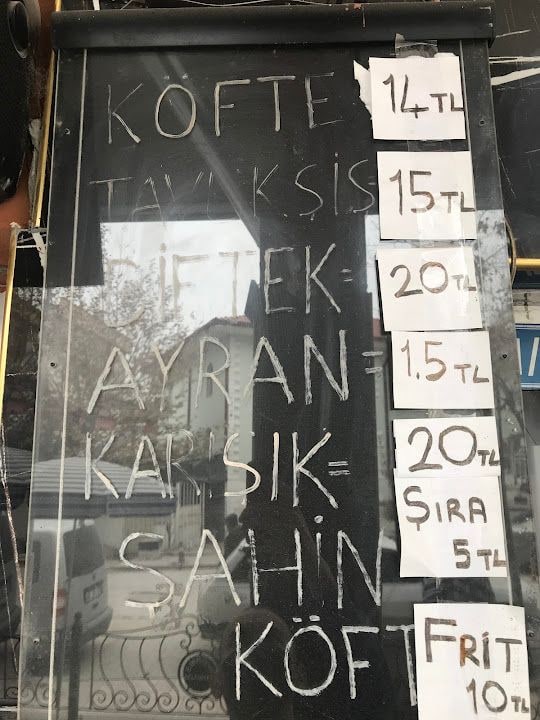 KÖFTE 14TL
TAVUK.ŞİŞ 15TL
ÇİFTEK= 20TL
AYRAN= 1.5TL
KARIŞIK= 20TL
ŞIRA
5TL
ŞAHİN
KÖFT
FRİT
10TL